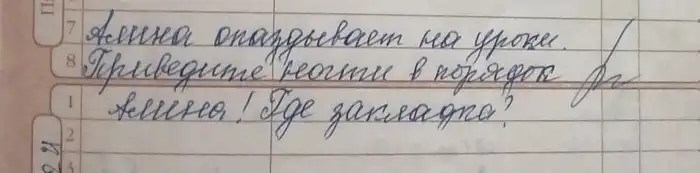 7 Алина опаздывает на уроки.
8 Приведите ногти в порядок
1 Алина! Где закладка?
2